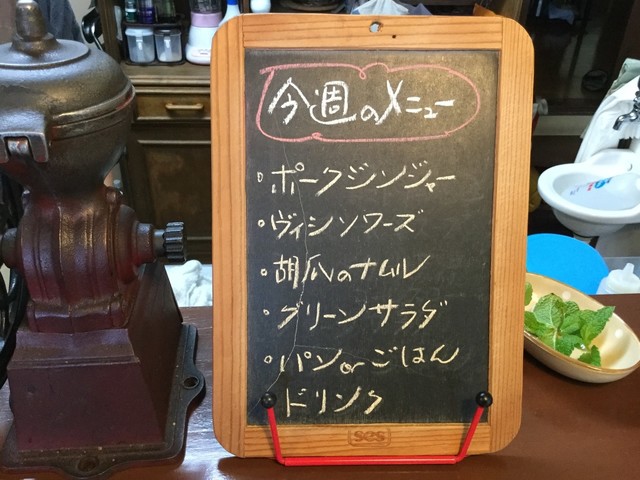 今週のメニュー
・ポークジンジャー
・ヴィシソワーズ
・胡瓜のナムル
・グリーンサラダ
・パンorごはん
・ドリンク
SGS